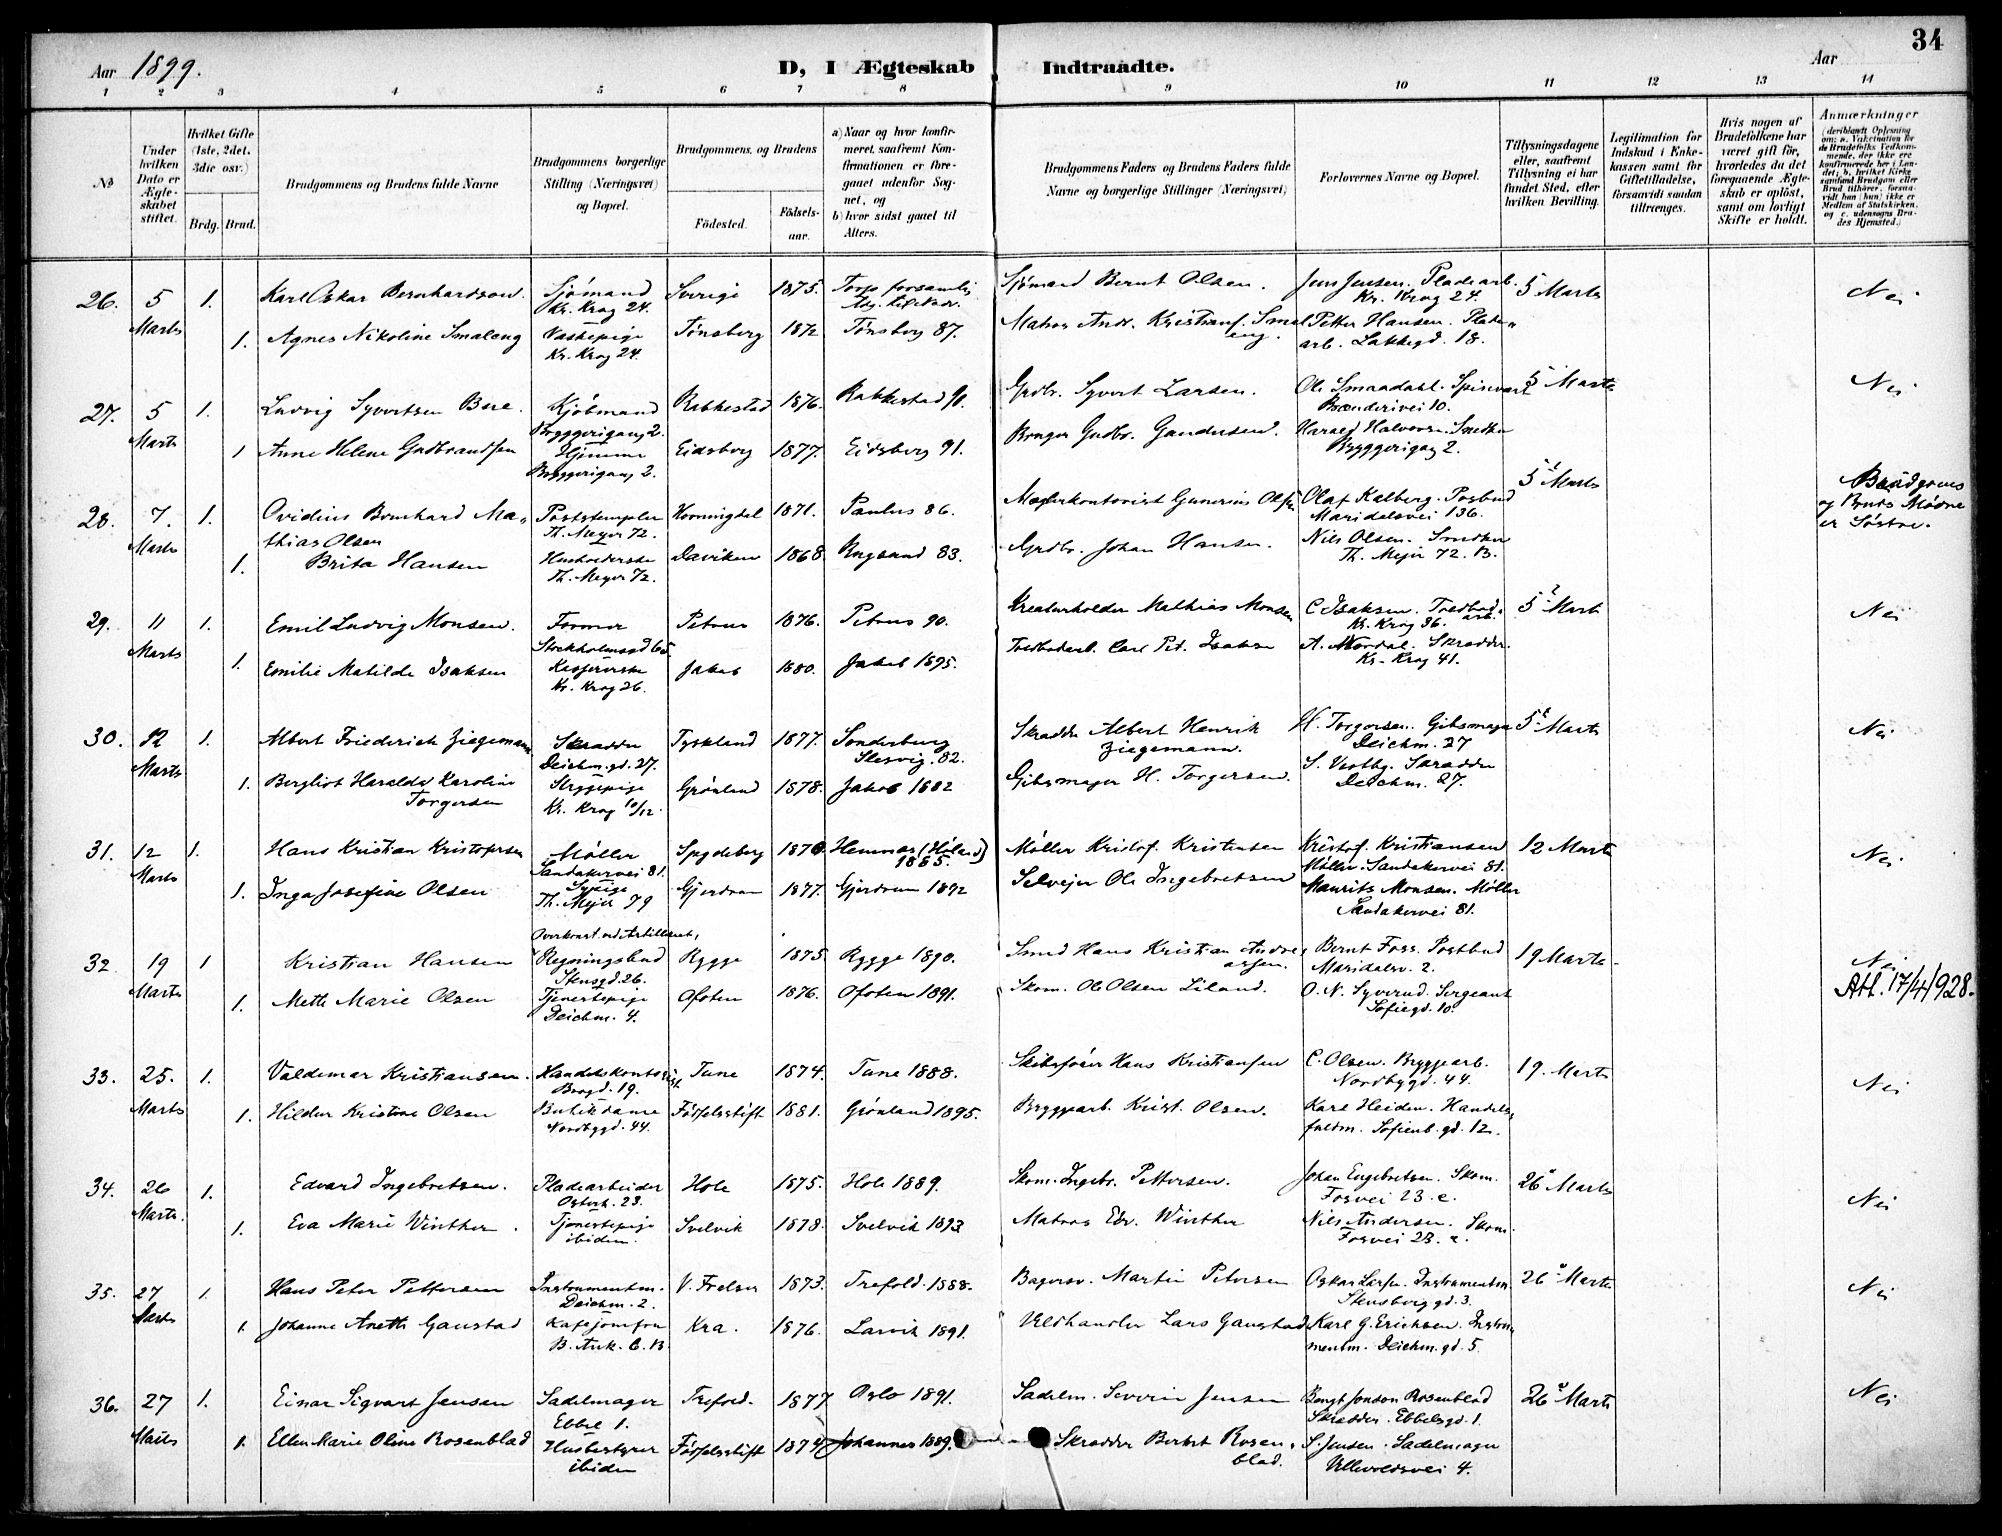 34
Aar 1899. D, I Ægteskab Indtraadte. Aar
1 2 3 4 5 6 7 8 9 10 11 12 13 14
No
Under hvilken Dato er Ægteskabet stiftet.
Hvilket Gifte (1ste, 2det, 3die osv.)
Brdg. Brud.
Brudgommens og Brudens fulde Navne
Brudgommens borgerlige Stilling (Næringsvei) og Bopæl.
Brudgommens, og Brudens
Födested.
Födselsaar.
a) Naar og hvor konfirmeret, saafremt Konfirmationen er foregaaet udenfor Sognet, og
b) hvor sidst gaaet til Alters.
Brudgommens Faders og Brudens Faders fulde Navne og borgerlige Stillinger (Næringsvei)
Forlovernes Navne og Bopæl.
Tillysningsdagene eller, saafremt Tillysning ei har fundet Sted, efter hvilken Bevilling.
Legitimation for Indskud i Enkekassen samt for Giftetilladelse, forsaavidt saadan tiltrænges.
Hvis nogen af Brudefolkene har været gift før, hvorledes da det foregaaende Ægteskab er oplöst, samt om lovligt Skifte er holdt.
Anmærkninger (deriblandt Oplysning om: a. Vakcination for de Brudefolks Vedkommende, der ikke ere konfirmerede her i Landet; b. hvilket Kirkesamfund Brudgom eller Brud tilhører, forsaavidt han (hun) ikke er Medlem af Statskirken, og c. udensogns Brudes Hjemsted.)
26. 5 Marts 1. Karl Oskar Bernhardson. Sjömand Kr. Krog 24. Sverige 1875. Torp Sjømand Bernt Olsen. Jens Jensen. Pladearb. Kr. Krog 24. 5 Marts Nei
1. Agnes Nikoline Smaleng Vaskepige Kr. Krog 24. Tønsberg 1872 Tønsberg 87. Matros Andr. Kristians. Smaleng. Petter Hansen. Pladearb. Lakkegd. 18.
27. 5 Marts 1. Ludvig Syvertsen Bue. Kjöbmand Bryggerigang 2. Rakkestad 1876. Rakkestad 91. Grdbr. Syvert Larsen. Ol. Smaadahl. Brenderivei 10. 5 Marts Nei
1 Anne Helene Gudbrandsen Hjemme Bryggerigang 2. Eidsberg 1877. Eidsberg 91. Bruger Gudbr. Gundersen. Harald Halvorsen. Snedker Bryggerigang 2.
28. 7. Marts 1. Ovidius Bernhard Mathias Olsen Poststempler Th. Meyer 72. Horningdal 1871. Paulus 86. Mæglerkontorist Gunerius Olsen Olaf Kalberg. Postbud Maridalsvei 136. 5 Marts Brudgoms og Bruds Mødre er Søstre.
1. Brita Hansen Husholderske Th. Meyer 72. Daviken 1868 Rugsund 83. Grdbr. Johan Hansen. Nils Olsen. Snedker Th. Mejer 72. B.
29. 11 Marts 1. Emil Ludvig Monsen. Former Stockholmsgd 65 Petrus 1876. Petrus 90. Kreaturholder Mathias Monsen C. Isaksen. Kr. Krog 26. 5 Marts Nei
1. Emilie Matilde Isaksen Kr. Krog 26. Jakob 1880. Jakob 1895. Carl Pet. Isaksen A. Mordal. Skrædder. Kr. Krog 41.
30. 12 Marts 1. Albert Friederich Ziegemann Skrædder Deichm. gd. 27. Tyskland 1877. Sonderburg Slesvig. 82. Skrædder Albert Henrik Ziegemann. H. Torgersen. Gibsmager Deichm. 27 5 Marts Nei
1. Bergliot Haralda Karoline Torgersen Strygepige Kr. Krog 10/12. Grönland 1878. Jakob 1882 Gibsmager H. Torgersen. S. Vestby. Skrædder Deichm. 27.
31. 12 Marts 1. Hans Kristian Kristofersen Möller Sandakervei 81. Spydeberg 1870 Hemnes (Höland) 1885. Møller Kristof. Kristensen Kristof. Kristiansen Møller. Sandakervei 81. 12 Marts Nei
1. Inga Josefine Olsen Sypige Th. Mejer 79 Gjerdrum 1877. Gjerdrum 1892 Selvejer Ole Ingebretsen Maurits Monsen. Møller Sandakervei 81.
32 19 Marts 1 Kristian Hansen Overkonst. ved Artilleriet, Regningsbud Stensgd. 26. Rygge 1875 Rygge 1890. Smed Hans Kristian Andreassen. Bernt Foss. Postbud Maridalsv. 2. 19 Marts. Nei Att. 17/4 1928.
1. Mette Marie Olsen Tjenestepige Deichm. 4. Ofoten 1876. Ofoten 1891. Skom. Ole Olsen Liland. O. N. Syverud. Sergeant Sofiegd. 10.
33. 25. Marts 1. Valdemar Kristiansen. Handelskontorist Brogd. 19. Tune 1874. Tune 1888. Skibsfører Hans Kristiansen C. Olsen. Bryggearb. Nordbygd. 44. 19. Marts Nei
1. Hildur Kristine Olsen Butikdame Nordbygd. 44. Födselsstift 1881. Grönland 1895. Bryggearb. Krist. Olsen. Karl Heiden. Handelsfuldm. Sofienb. gd. 12.
34. 26 Marts. 1. Edvard Ingebretsen. Pladearbeider Osterh. 23. Hole 1875. Hole 1889. Skom. Ingebr. Pettersen. Johan Engebretsen. Skom. Fosvei 23. c. 26 Marts Nei
1. Eva Marie Winther. Tjenestepige ibidem. Svelvik 1878. Svelvik 1893 Matros Edv. Winther Nils Andersen. Skom. Fosvei 23. c.
35. 27 Marts 1. Hans Peter Pettersen Instrumentm. Deichm. 2. V. Frelser 1873. Trefold. 1888. Bagersv. Martin Petersen Oskar Larsen. Instrumentm. Stensberggd. 3. 26 Marts Nei
1. Johanne Anette Gaustad Kafejomfru B. Ank. 6. B. Kra. 1876. Larvik 1891. Vildhandler Lars Gaustad Karl G. Erichsen. Instrumentm. Deichm. gd. 5.
36. 27 Marts 1. Einar Sigvart Jensen Sadelmager Ebbel 1. Trefold. 1877 Oslo 1891. Sadelm. Severin Jensen Bengt Jonson Rosenblad Skrædder. Ebbelsgd. 1. 26 Marts Nei
1. Ellen Marie Oline Rosenblad Husbestyrer ibidem Födselsstift 1874 Johannes 1889. Skrædder Berent Rosenblad. S. Jensen. Sadelmager Ullevoldsvei 4.